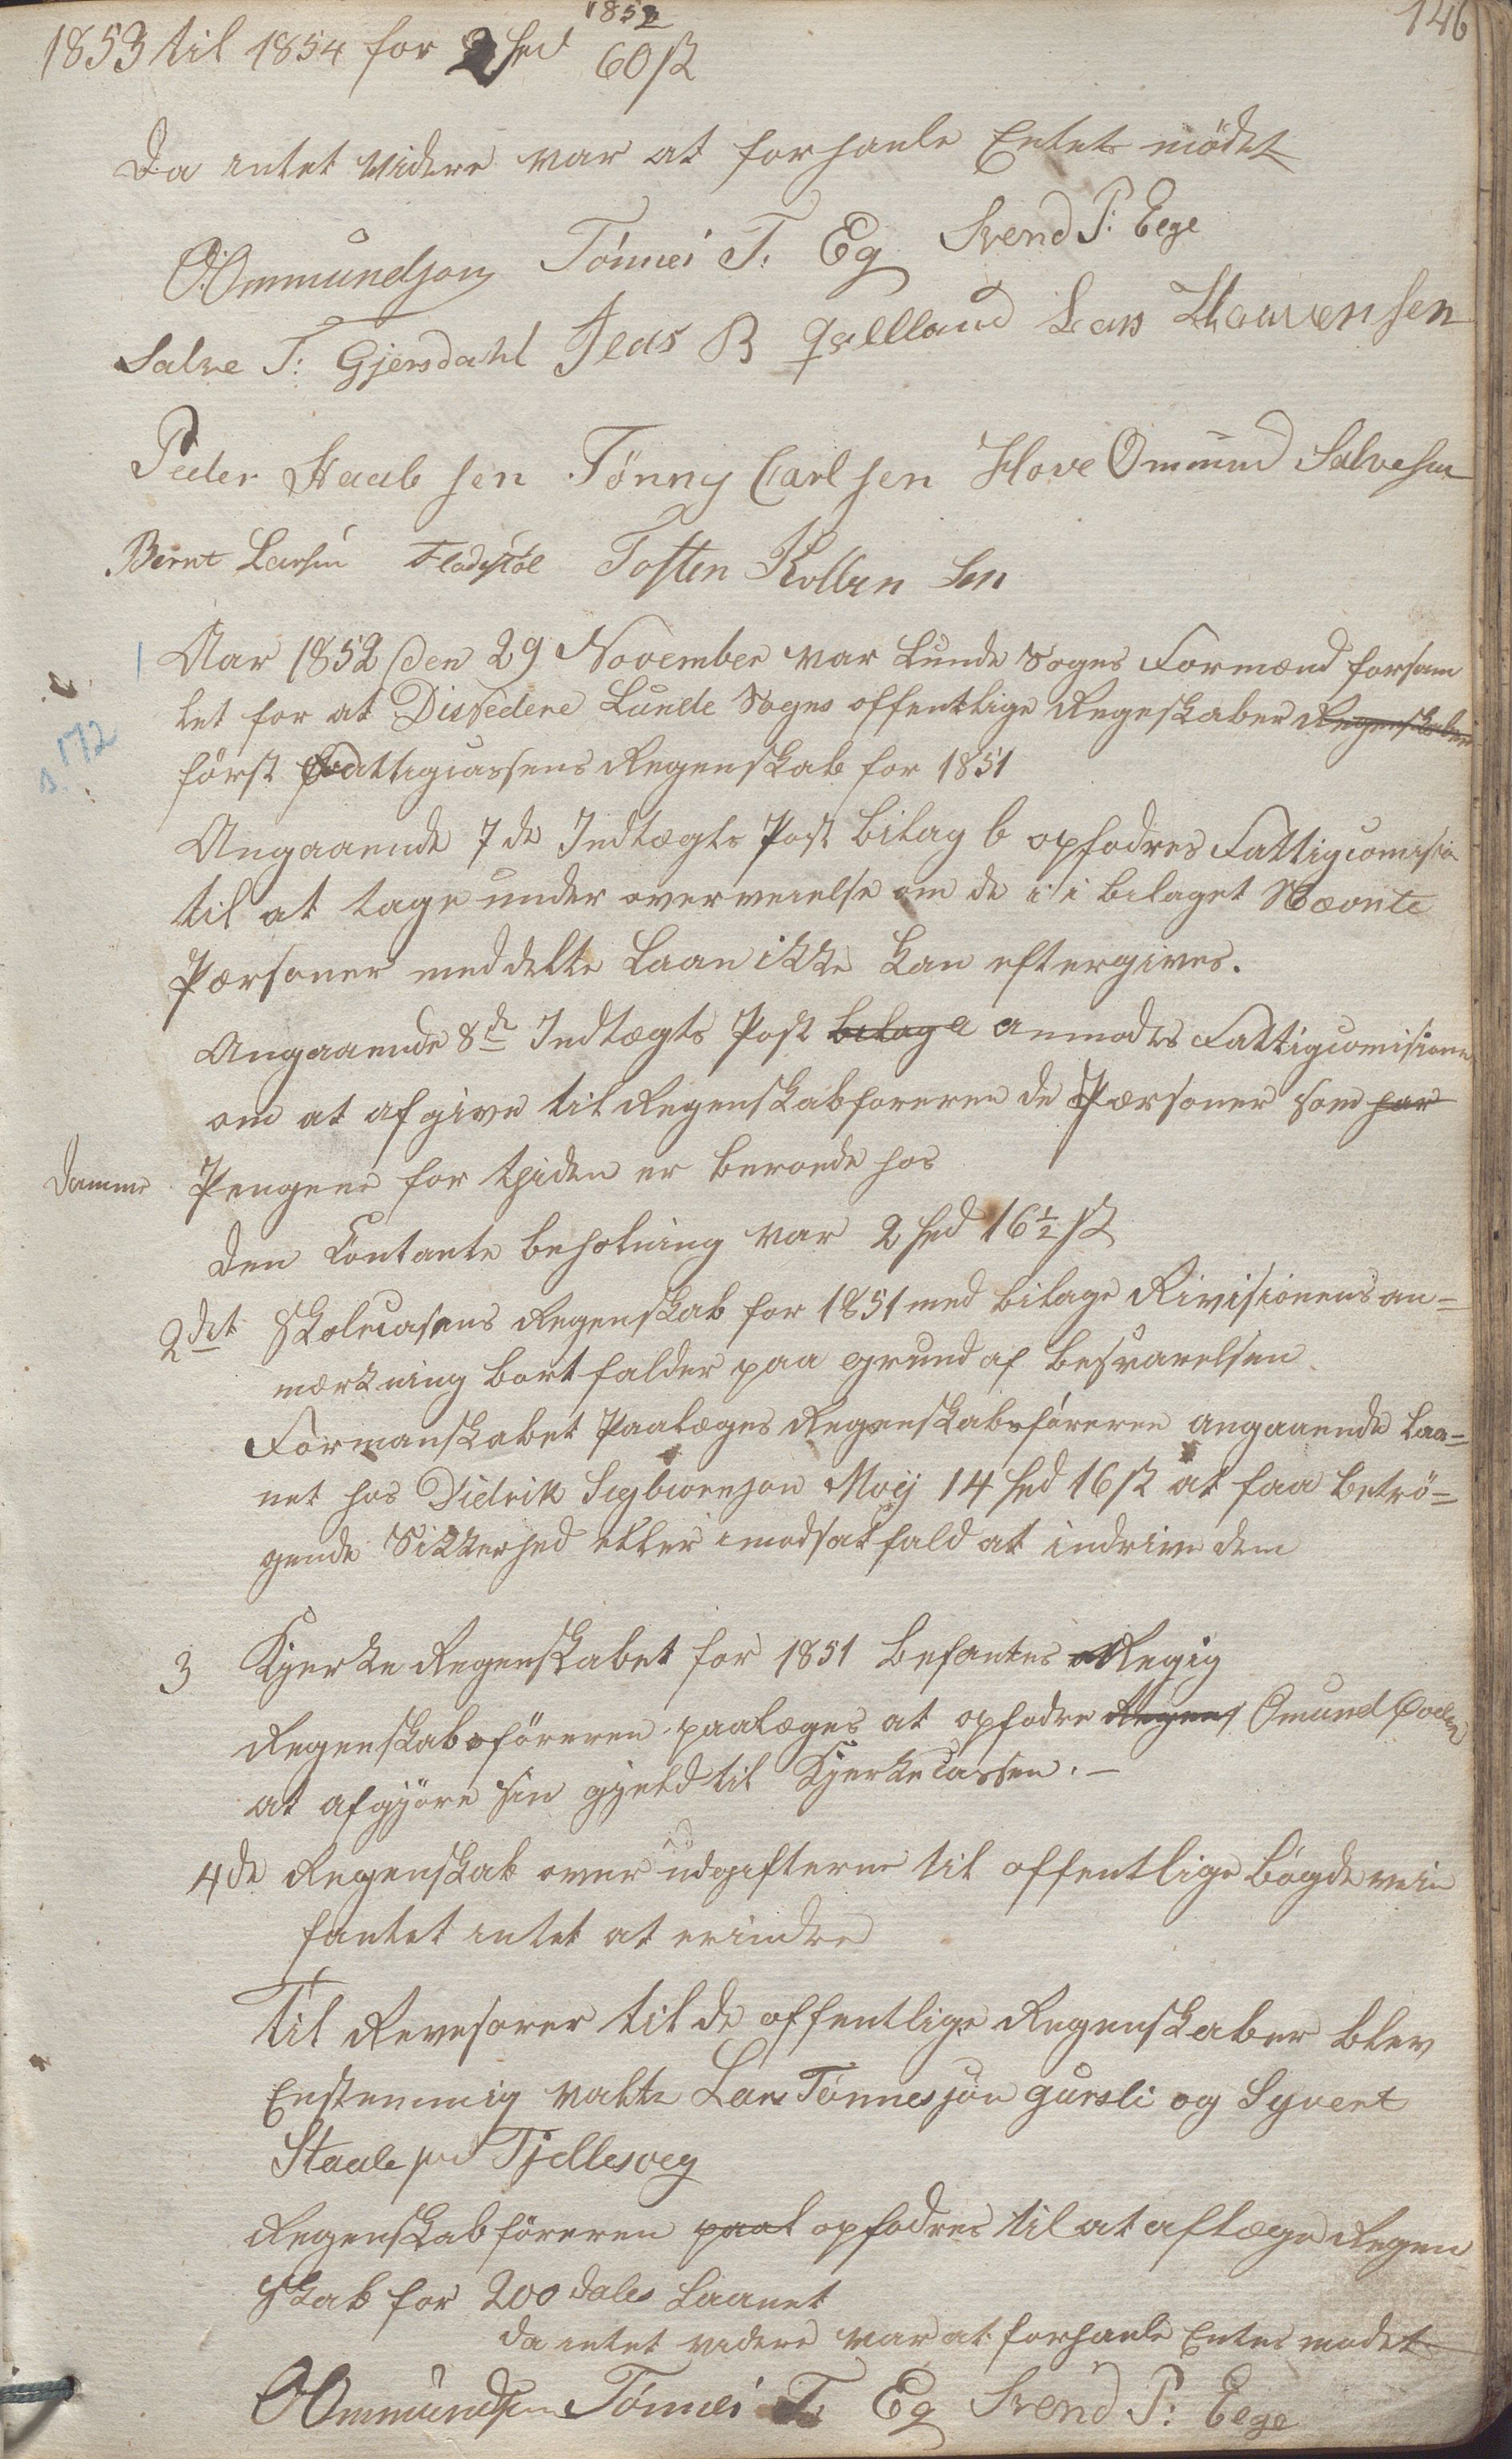 146
1852
1853 til 1854 for 2 spd 60 ß
Da intet videre var at forhanle Entets mödet
O Ommundsen Tönnes T. Eg Svend P: Eege
Salve T: Gjersdahl Jens B Qvelland Lars Lauvensen
Peder Staalesen Tönny Carlsen Hove Ommund Salvesen
Bernt Larsen Fladstöl Tosten Kollen sen
1 Aar 1852 den 29 November var Lunde Sogns Formænd forsam
let for at Disidere Lunde Sogns offentlige Regeskaber Regenskaber
s. 172
först Fattigcassens Regenskab for 1851
Angaaende 7de Indtægts Post bilag b opfodres Fattigcomision
til at tage under overveielse om de i i bilaget Nævnte
Pærsoner meddelte Laan ikke kan eftergives.
Angaaende 8de Indtægts Post bilage anmodes Fattigcomisionen
om at afgive til Regenskabforeren de Pærsoner som har
Pengene for tjiden er beroende hos
Den Contante beholning var 2 spd 16½ ß
2det Skolecasens Regenskab for 1851 med bilage Rivisionens an=
mærkning bortfalder paa grund af besvarelsen
Formanskabet Paalæges Regenskabsföreren angaaende Laa=
net hos Didrik Sigbiornson Moij 14 spd 16 ß at faa betrö=
gende Sikkerhed eller imodsat fald at indrive dem
3 Kjerke Regenskabet for 1851 befantes Regig
Regenskabsföreren paalæges at opfodre Regens Omund
at afgjöre sin gjeld til Kjerkecassen. -
4de Regenskab over udgifterne til offentlige bögdeveie
fantet intet at erindre
Til Revesorer til de offentlige Regenskaber blev
Enstemmig valte Lars Tönnesson Gursli og Syvert
Staalesen Tjellesveg
Regenskabföreren paal opfodres til at aflæge Regen
skab for 200 dales Laanet
da intet videre var at forhanle Entes modet
O Ommundsen Tönnes T. Eg Svend P: Eege